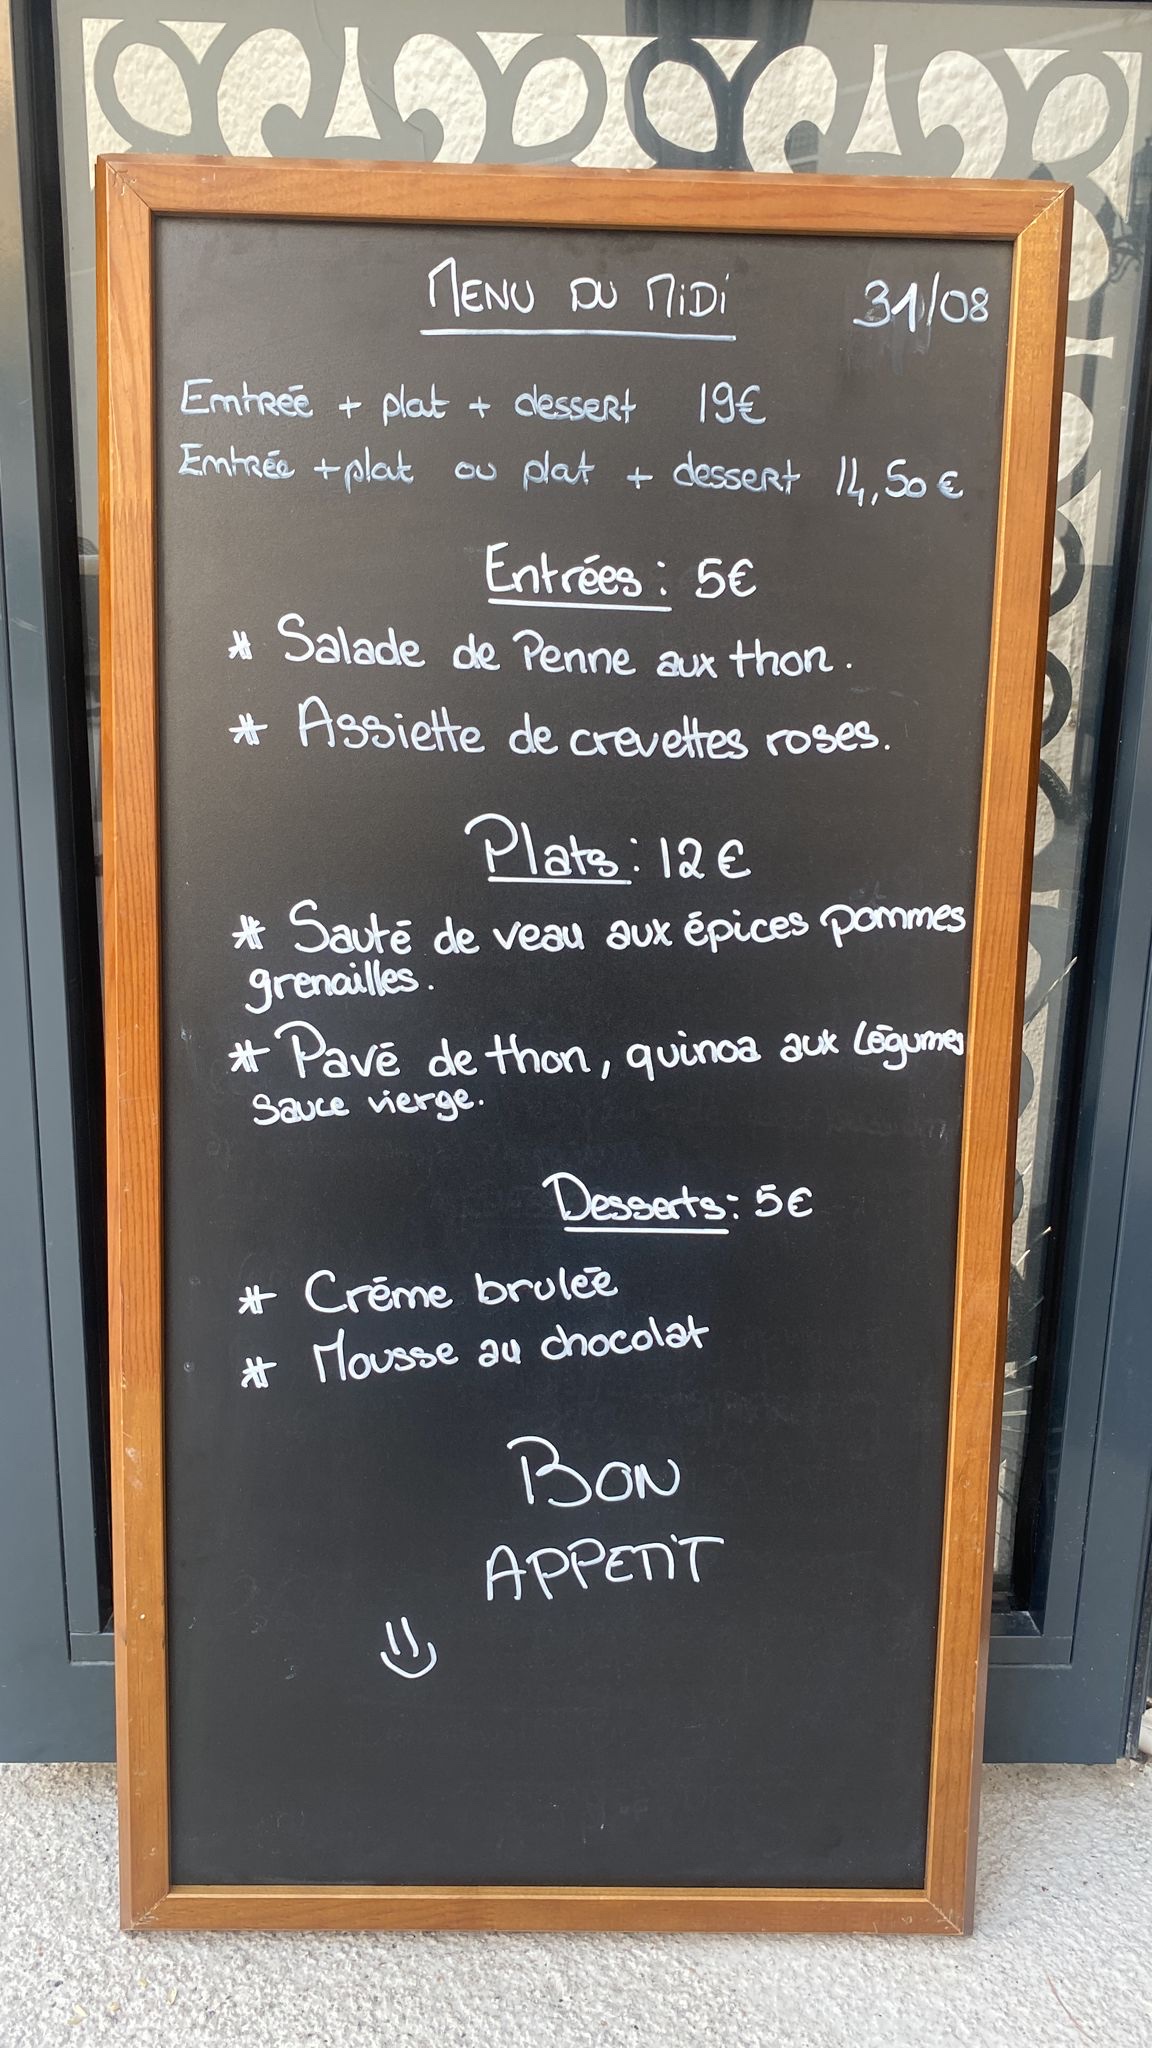 MENU DU MIDI 31/08
Entrée + plat + dessert 19€
Entrée + plat ou plat + dessert 14,50€
Entrées : 5€
* Salade de Penne aux thon.
* Assiette de crevettes roses.
Plats : 12€
* Sauté de veau aux épices pommes
grenailles.
* Pavé de thon, quinoa aux légumes
sauce vierge.
Desserts : 5€
* Créme brulée
* Mousse au chocolat
BON
APPETIT